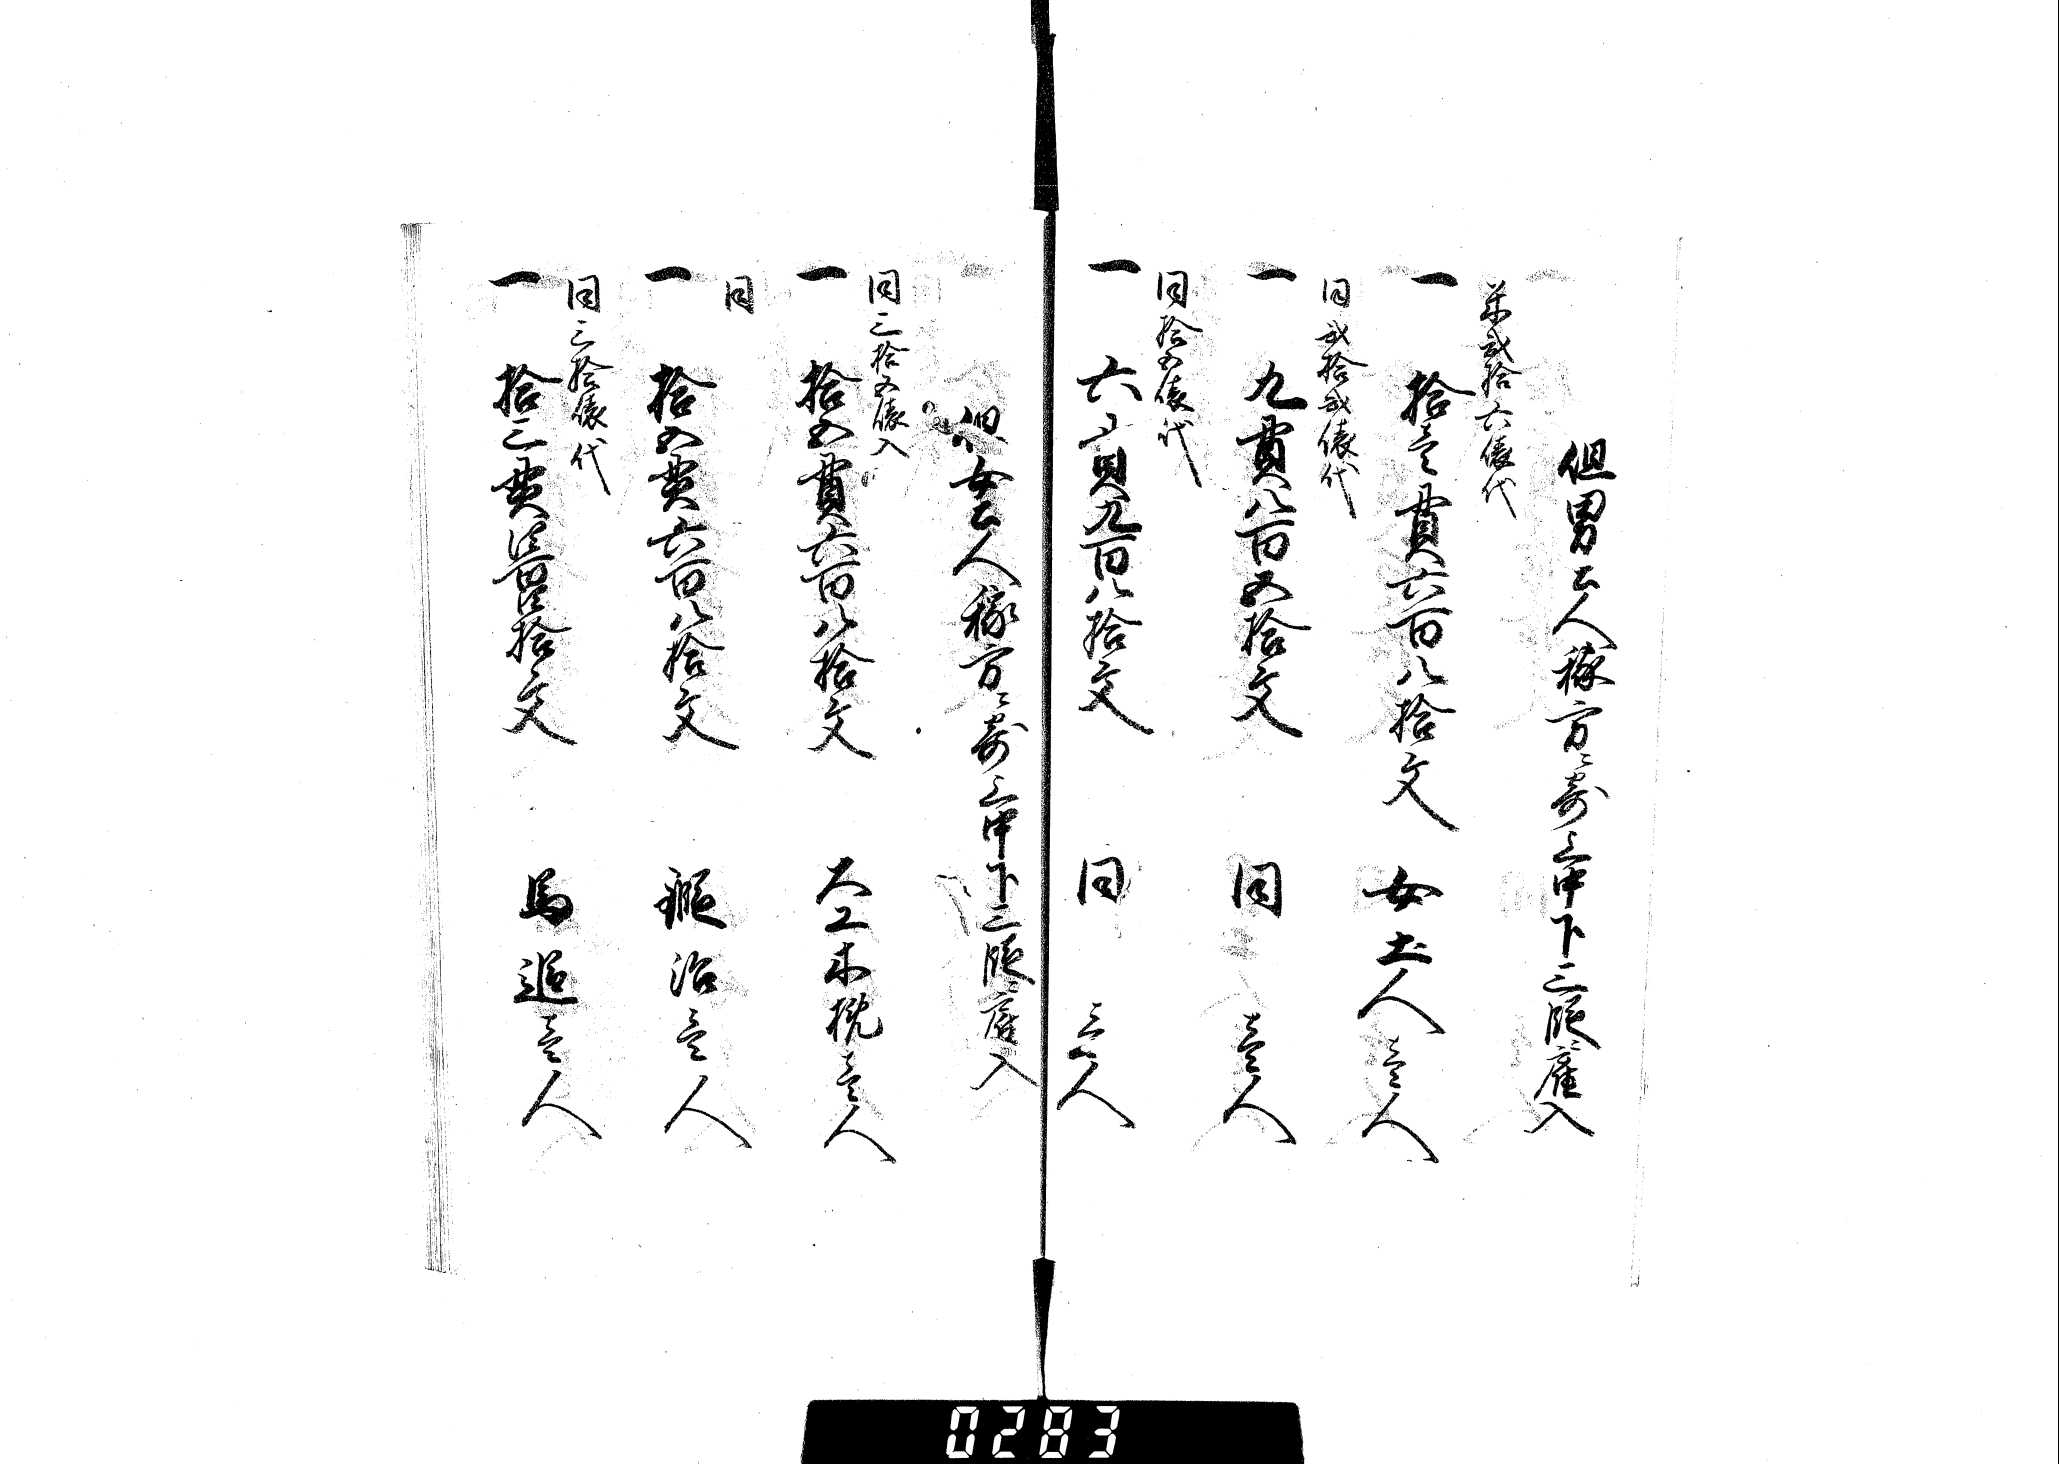 但男土人稼方ニ寄上中下三段雇入
米弐拾六俵代
一 拾壱貫六百八拾文 女土人壱人
同弐拾弐俵代
一 九貫八百五拾文 同 壱人
同拾五俵代
一 六貫九百八拾文 同 壱人
但女土人稼方ニ寄上中下三段雇入
同三拾五俵入
一 拾五貫六百八拾文 大工木挽壱人
同
一 拾五貫六百八拾文 鍛治壱人
同三拾俵代
一 拾三貫四百四拾文 馬追壱人
0283